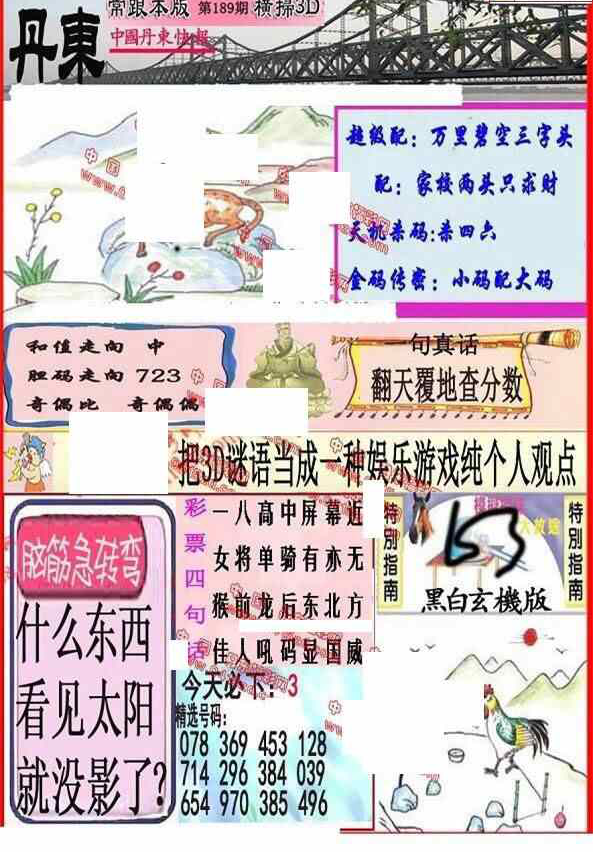 常跟本版 第189期 横掃3D
丹東
中國丹東快報
超级配：万里碧空三字头
配：家校两头只求财
天机杀码:杀四六
金码传密：小码配大码
和值走向 中
胆码走向 723
奇偶比 奇偶偶
一句真话
翻天覆地查分数
把3D谜语当成一种娱乐游戏纯个人观点
脑筋急转弯
什么东西
看见太阳
就没影了?
彩票四句话
一八高中屏幕近
女将单骑有亦无
猴前龙后东北方
佳人吼码显国威
今天必下：3
精选号码:
078 369 453 128
714 296 384 039
654 970 385 496
特別指南
特別指南
黑白玄機版